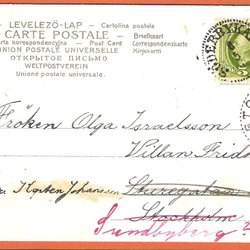 LEVELEZÖ-LAP — Cartolina postale
CARTE POSTALE — Briefkaart
Karta korespondencyjna — Post Card — Correspondenzkarte
UNION POSTALE UNIVERSELLE Kirjekortti
ОТКРЫТОЕ ПИСЬМО
WELTPOSTVEREIN
Unione postale universale.
Fröken Olga Israelsson
Villan Frid
Kerken Johansson Sturegatan
Stockholm
Sundbyberg